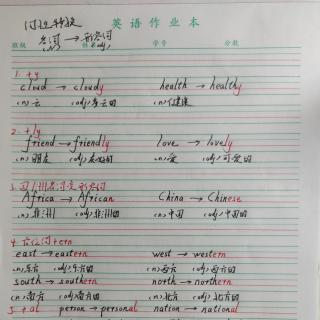 词性转换 英语作业本
名词 → 形容词
(n) (adj)
班级 姓名 学号 分数
1. +y
cloud → cloudy health → healthy
(n)云 (adj)多云的 (n)健康
2. +ly
friend → friendly love → lovely
(n)朋友 (adj)友好的 (n)爱 (adj)可爱的
3. 国/州名词变形容词
Africa → African China → Chinese
(n)非洲 (adj)非洲的 (n)中国 (adj)中国的
4. 方位词+ern
east → eastern west → western
(n)东方 (adj)东方的 (n)西方 (adj)西方的
south → southern north → northern
(n)南方 (adj)南方的 (n)北方 (adj)北方的
5. +al person → personal nation → national